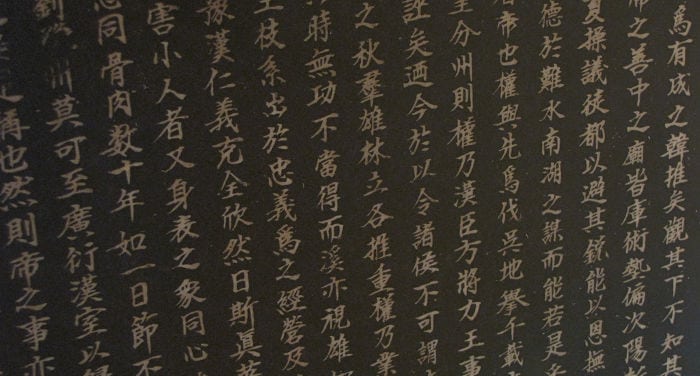 爲有成之韓推矣觀其下不知其
帝之善中之廟皆庫術藝偏次陽
夏操議徒都以避其鋒能以恩撫
德於難水南湖之謀而能若是乎
帝也權與先爲伐吳地擧千載
至分州則權乃漢臣方將力王事
誑矣迺今於以令諸侯不可謂
之秋羣雄林立各推重權乃業
時無功不當得而溪亦視雄
王枝系出於忠義爲之經營及
豫漢仁義充全欣然曰斯眞
害小人者又身表之衆同心
同骨肉数十年如一日節不
劉 州莫可至廣衍漢室以
稱也然則帝之事亦